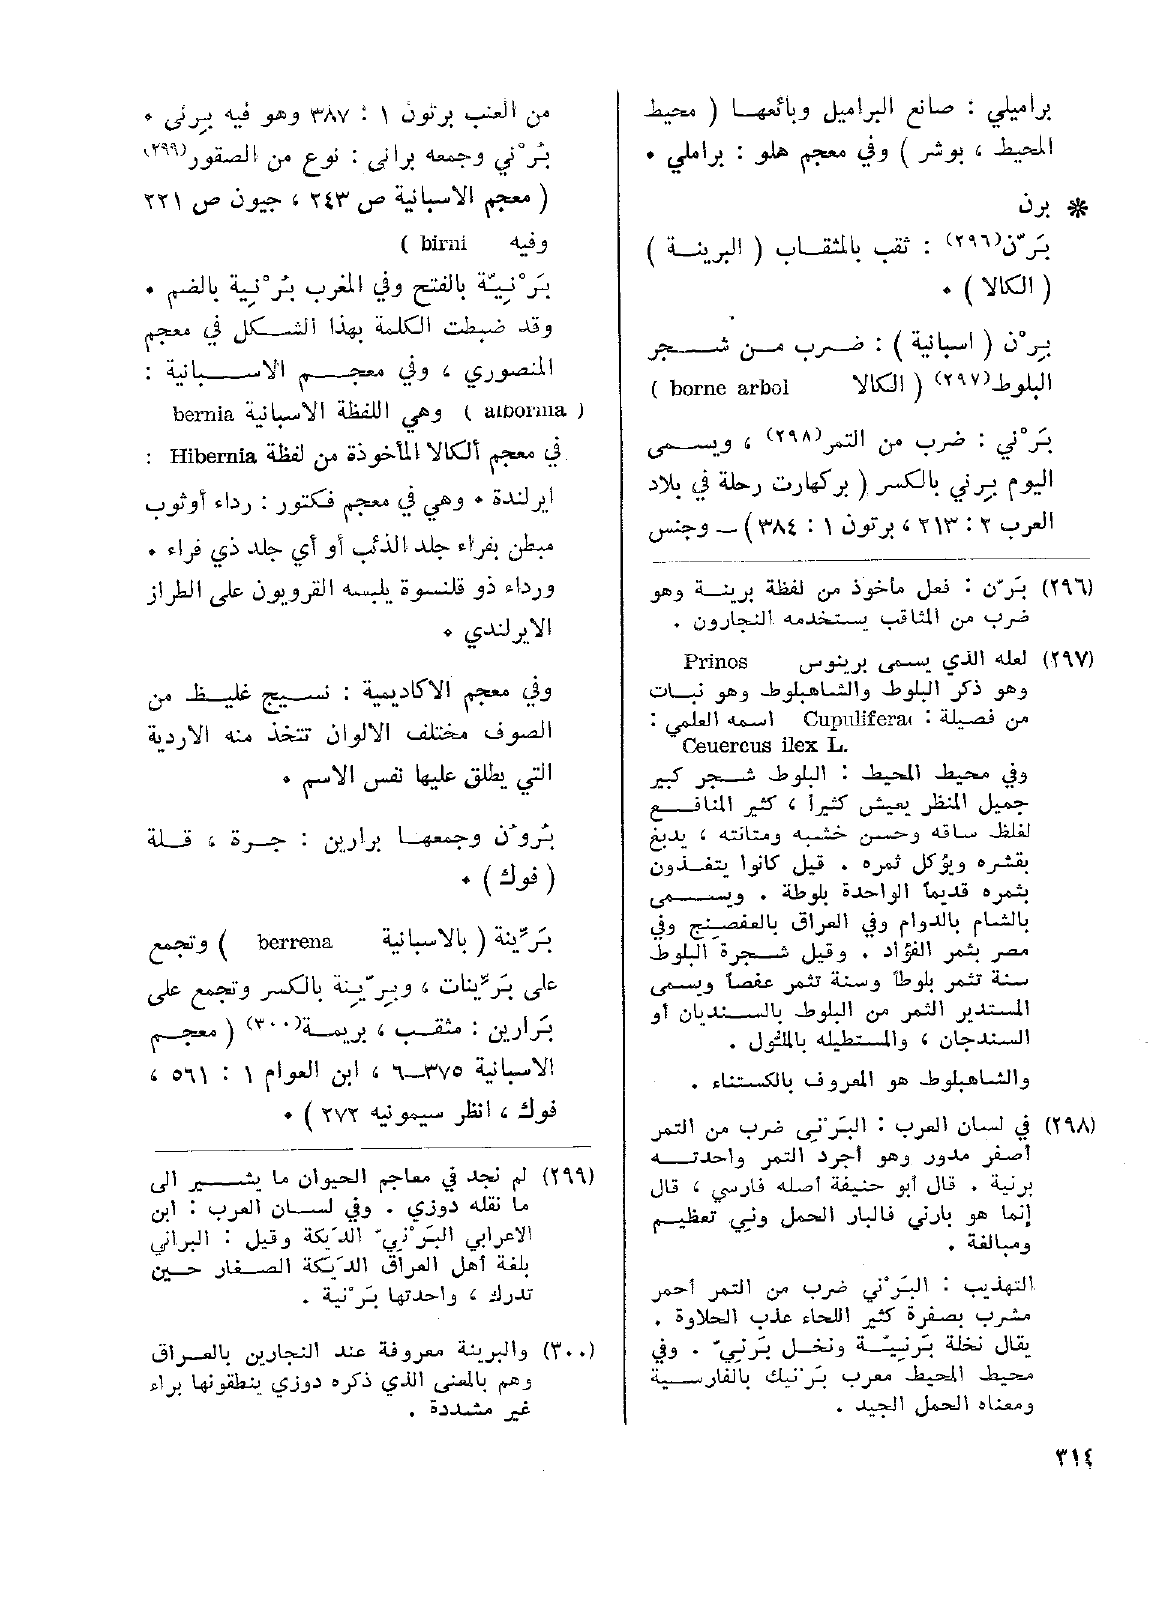 براميلي : صانع البراميل وبائعها ( محيط
المحيط ، بوشر ) وفي معجم هلو : براملي •
* برن
بَرّن(٢٩٦) : ثقب بالمثقاب ( البرينة )
( الكالا ) •
بِرْن ( اسبانية ) : ضرب من شجر
البلوط(٢٩٧) ( الكالا borne arbol )
بَرْني : ضرب من التمر(٢٩٨) ، ويسمى
اليوم بِرني بالكسر ( بركهارت رحلة في بلاد
العرب ٢ : ٢١٣ ، برتون ١ : ٣٨٤ ) — وجنس
(٢٩٦) بَرّن : فعل مأخوذ من لفظة برينة وهو
ضرب من المثاقب يستخدمه النجارون .
(٢٩٧) لعله الذي يسمى برينوس Prinos
وهو ذكر البلوط والشاهبلوط وهو نبات
من فصيلة : Cupuliferae اسمه العلمي :
Ceuercus ilex L.
وفي محيط المحيط : البلوط شجر كبير
جميل المنظر يعيش كثيراً ، كثير المنافع
لغلظ ساقه وحسن خشبه ومتانته ، يدبغ
بقشره ويؤكل ثمره . قيل كانوا يتغذون
بثمره قديماً الواحدة بلوطة . ويسمى
بالشام بالدوام وفي العراق بالعفصينج وفي
مصر بثمر الفؤاد . وقيل شجرة البلوط
سنة تثمر بلوطاً وسنة تثمر عفصاً ويسمى
المستدير الثمر من البلوط بالسنديان أو
السندجان ، والمستطيله بالملول .
والشاهبلوط هو المعروف بالكستناء .
(٢٩٨) في لسان العرب : البَرْني ضرب من التمر
أصفر مدور وهو أجود التمر واحدته
برنية . قال أبو حنيفة أصله فارسي ، قال
إنما هو بارني فالبار الحمل وني تعظيم
ومبالغة .
التهذيب : البَرْني ضرب من التمر أحمر
مشرب بصفرة كثير اللحاء عذب الحلاوة .
يقال نخلة بَرْنِيّة ونخل بَرْنيّ . وفي
محيط المحيط معرب بَرْنيك بالفارسية
ومعناه الحمل الجيد .
من العنب برتون ١ : ٣٨٧ وهو فيه بِرني •
بُرْني وجمعه براني : نوع من الصقور(٢٩٩)
( معجم الاسبانية ص ٢٤٣ ، جيون ص ٢٢١
وفيه birni )
بَرْنِيّة بالفتح وفي المغرب بُرْنِية بالضم •
وقد ضبطت الكلمة بهذا الشكل في معجم
المنصوري ، وفي معجم الاسبانية :
( albornia ) وهي اللفظة الاسبانية bernia
في معجم ألكالا المأخوذة من لفظة Hibernia :
ايرلندة • وهي في معجم فكتور : رداء أوثوب
مبطن بفراء جلد الذئب أو أي جلد ذي فراء •
ورداء ذو قلنسوة يلبسه القرويون على الطراز
الايرلندي •
وفي معجم الاكاديمية : نسيج غليظ من
الصوف مختلف الالوان تتخذ منه الاردية
التي يطلق عليها نفس الاسم •
بُرون وجمعها برارين : جرة ، قلة
( فوك ) •
بَرّينة ( بالاسبانية berrena ) وتجمع
على بَرّينات ، وبِرّينة بالكسر وتجمع على
بَرارين : مثقب ، بريمة(٣٠٠) ( معجم
الاسبانية ٣٧٥–٦ ، ابن العوام ١ : ٥٦١ ،
فوك ، انظر سيمونيه ٢٧٢ ) •
(٢٩٩) لم نجد في معاجم الحيوان ما يشير الى
ما نقله دوزي . وفي لسان العرب : ابن
الاعرابي البَرْنيّ الديكة وقيل : البراني
بلغة أهل العراق الديكة الصغار حين
تدرك ، واحدتها بَرْنية .
(٣٠٠) والبرينة معروفة عند النجارين بالعراق
وهم بالمعنى الذي ذكره دوزي ينطقونها براء
غير مشددة .
٣١٤